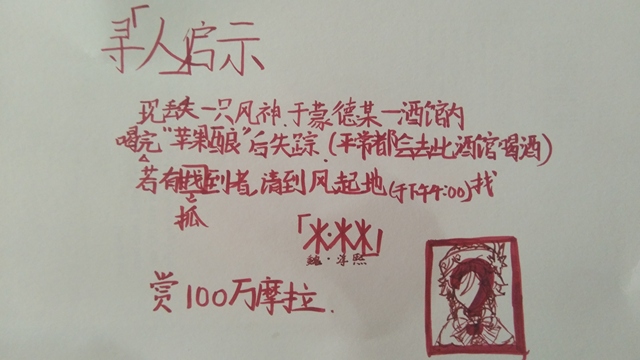 寻「人」启示
现丢失一只风神.于蒙德某一酒馆的
喝完“苹果酿”后失踪.(平常都会去此酒馆喝酒)
若有找到者,请到风起地(于下午4:00)找
抓
「米·米米」
魏·淳熙
赏100万摩拉.
?